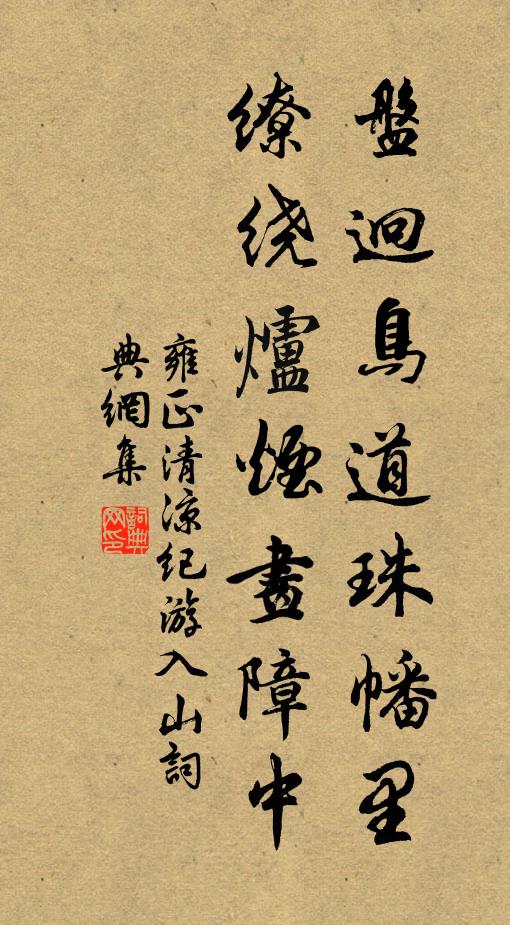 盤迴鳥道珠幡里
繚绕爐煙畫障中
雍正清涼紀游入山詞
典網集
詞典
网印